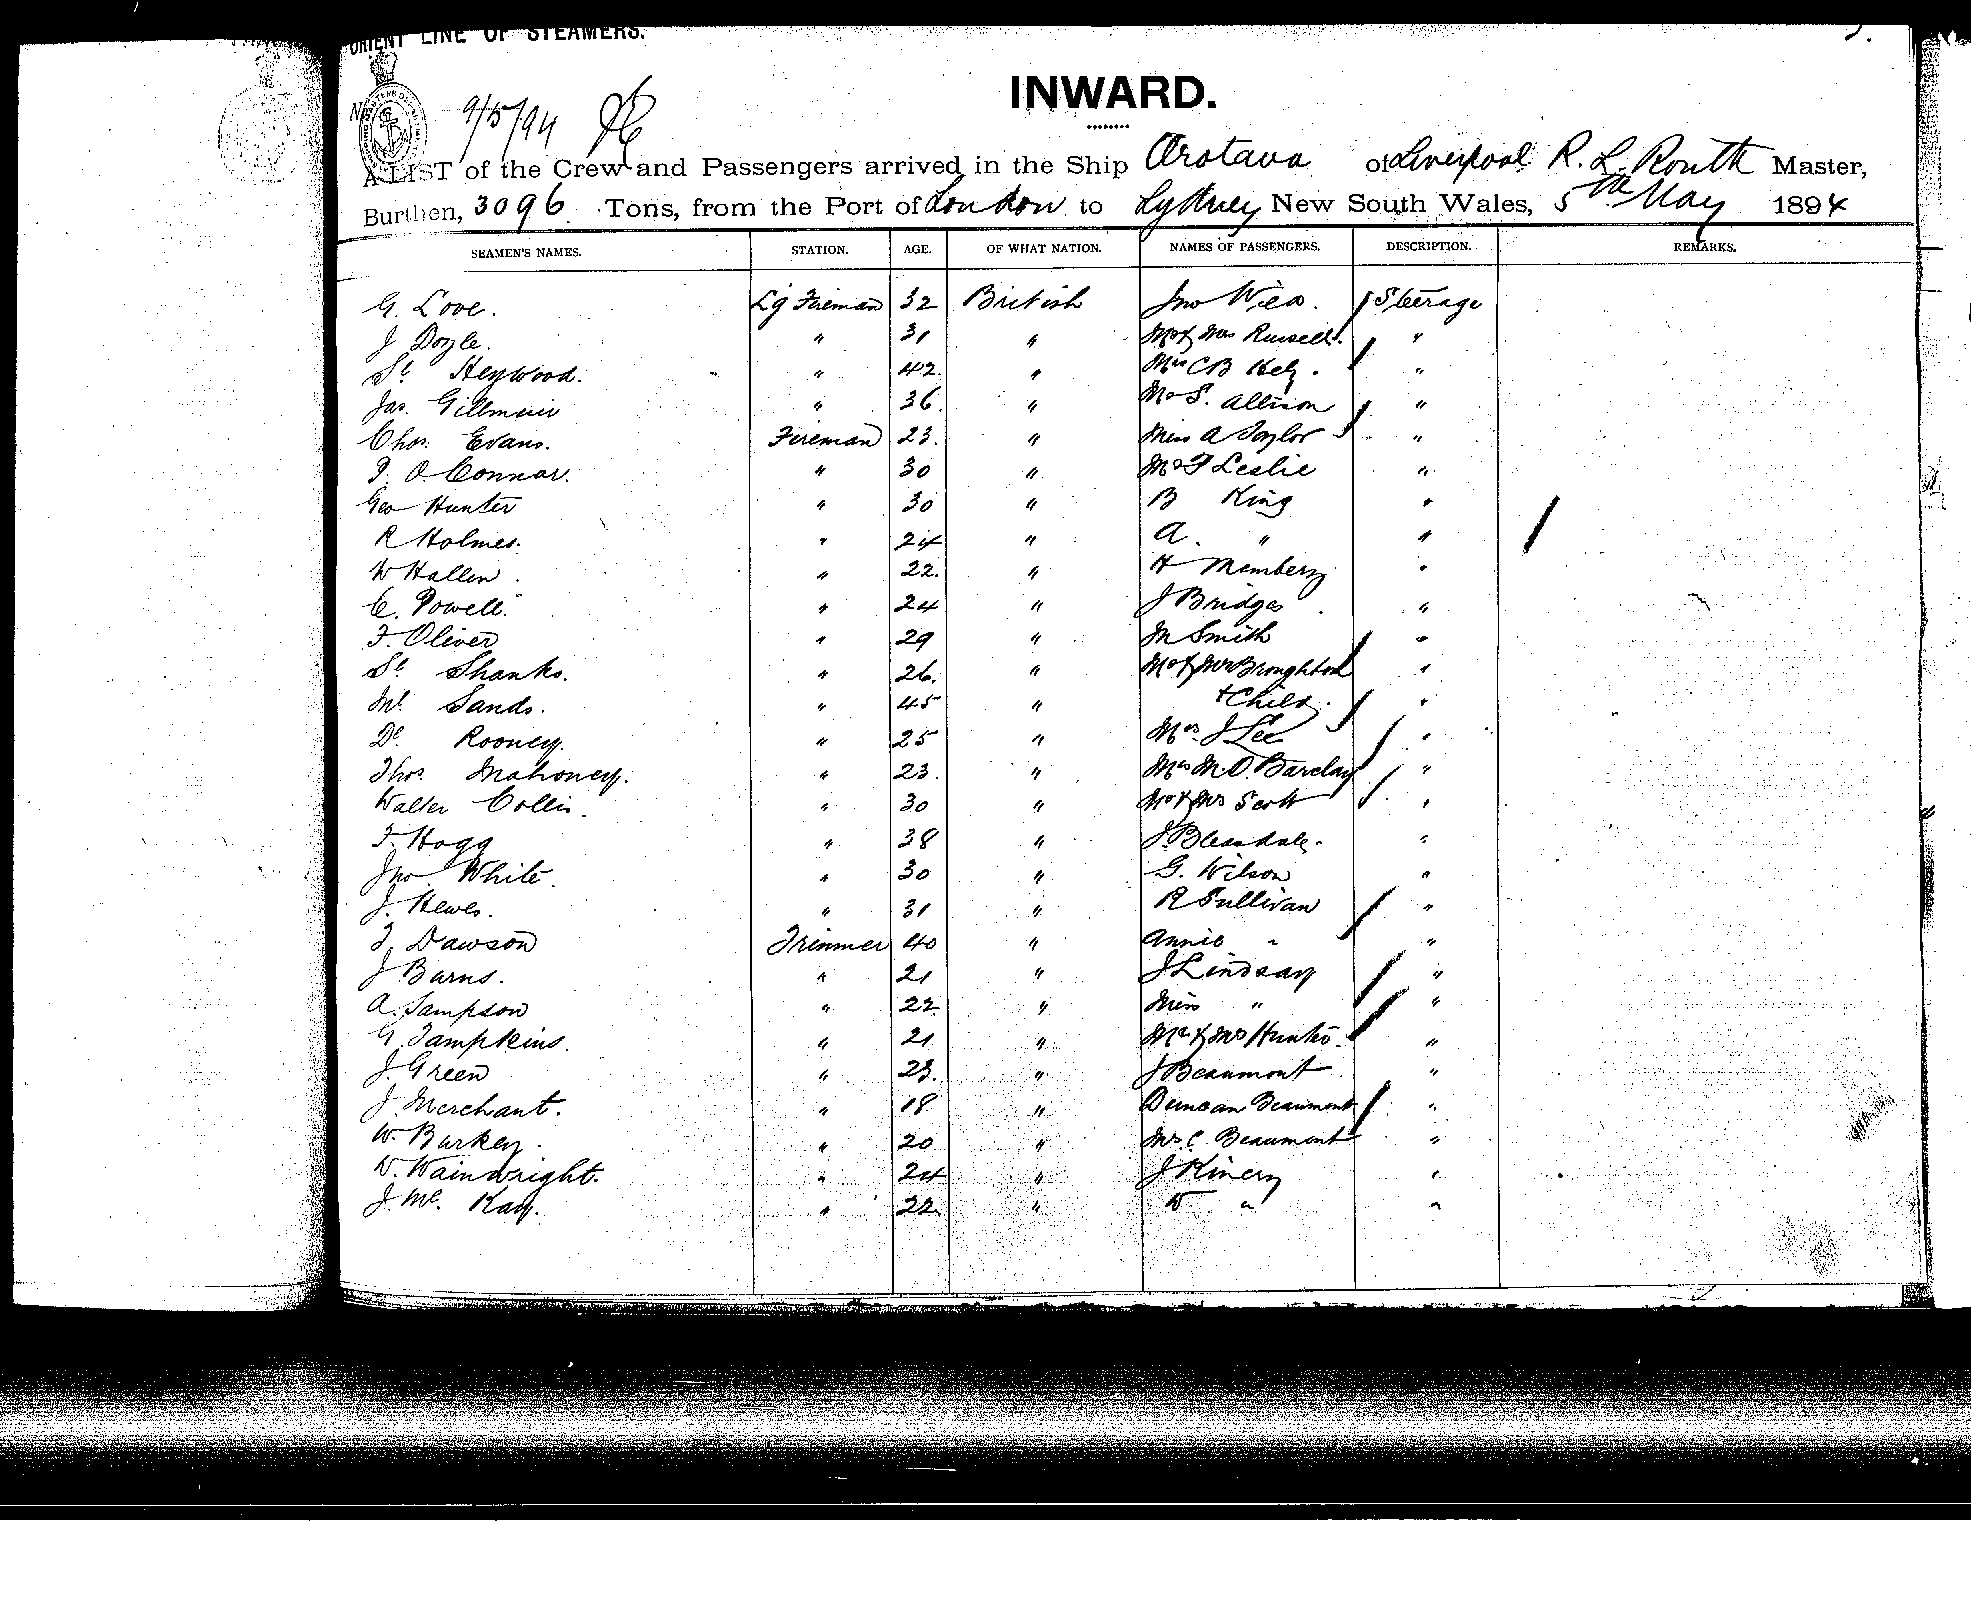 ORIENT LINE OF STEAMERS.
INWARD.
9/5/94
A LIST of the Crew and Passengers arrived in the Ship Orotava of Liverpool R. L. Routh Master,
Burthen, 3096 Tons, from the Port of London to Sydney New South Wales, 5th May 1894
SEAMEN'S NAMES. STATION. AGE. OF WHAT NATION. NAMES OF PASSENGERS. DESCRIPTION. REMARKS.
G. Love. Lg Fireman 32 British Jno Steerage
J Doyle. " 31 " Mr & Mrs Russell. "
Sl Heywood. " 42. " Mrs C B "
Jas. Gillmuir " 36. " Mr S. Allison "
Chas. Evans. Fireman 23. " Miss A Taylor "
P. O Connor. " 30 " Mr F Leslie "
Geo Hunter " 30 " B King "
R Holmes. " 24 " A. " "
W Hallen. " 22. " H Membery "
C. Powell. " 24 " J Bridges "
F. Oliver " 29 " M Smith "
Sl Shanks. " 26. " Mr & Mrs Broughton "
Ml Sands. " 45 " + Child. "
Dl Rooney. " 25 " Mrs. J Lee "
Thos. Mahoney. " 23. " Mrs M. O. Barclay "
Walter Collis. " 30 " Mr & Mrs Scott "
F. Hogg " 38 " J. Bleasdale. "
Jno White. " 30 " G. Wilson "
J. Hewes. " 31 " R Sullivan "
T. Dawson Trimmer 40 " Annie " "
J Burns. " 21 " J Lindsay "
A. Sampson " 22 " Miss " "
G. Tampkins. " 21 " Mr & Mrs Hunter "
J. Green " 23. " J Beaumont "
J. Merchant. " 18 " Duncan Beaumont "
W. Barkey. " 20 " Mrs C. Beaumont "
W. Wainwright. " 24 " J Kinery "
J. Mc. Kay. " 22. " W " "